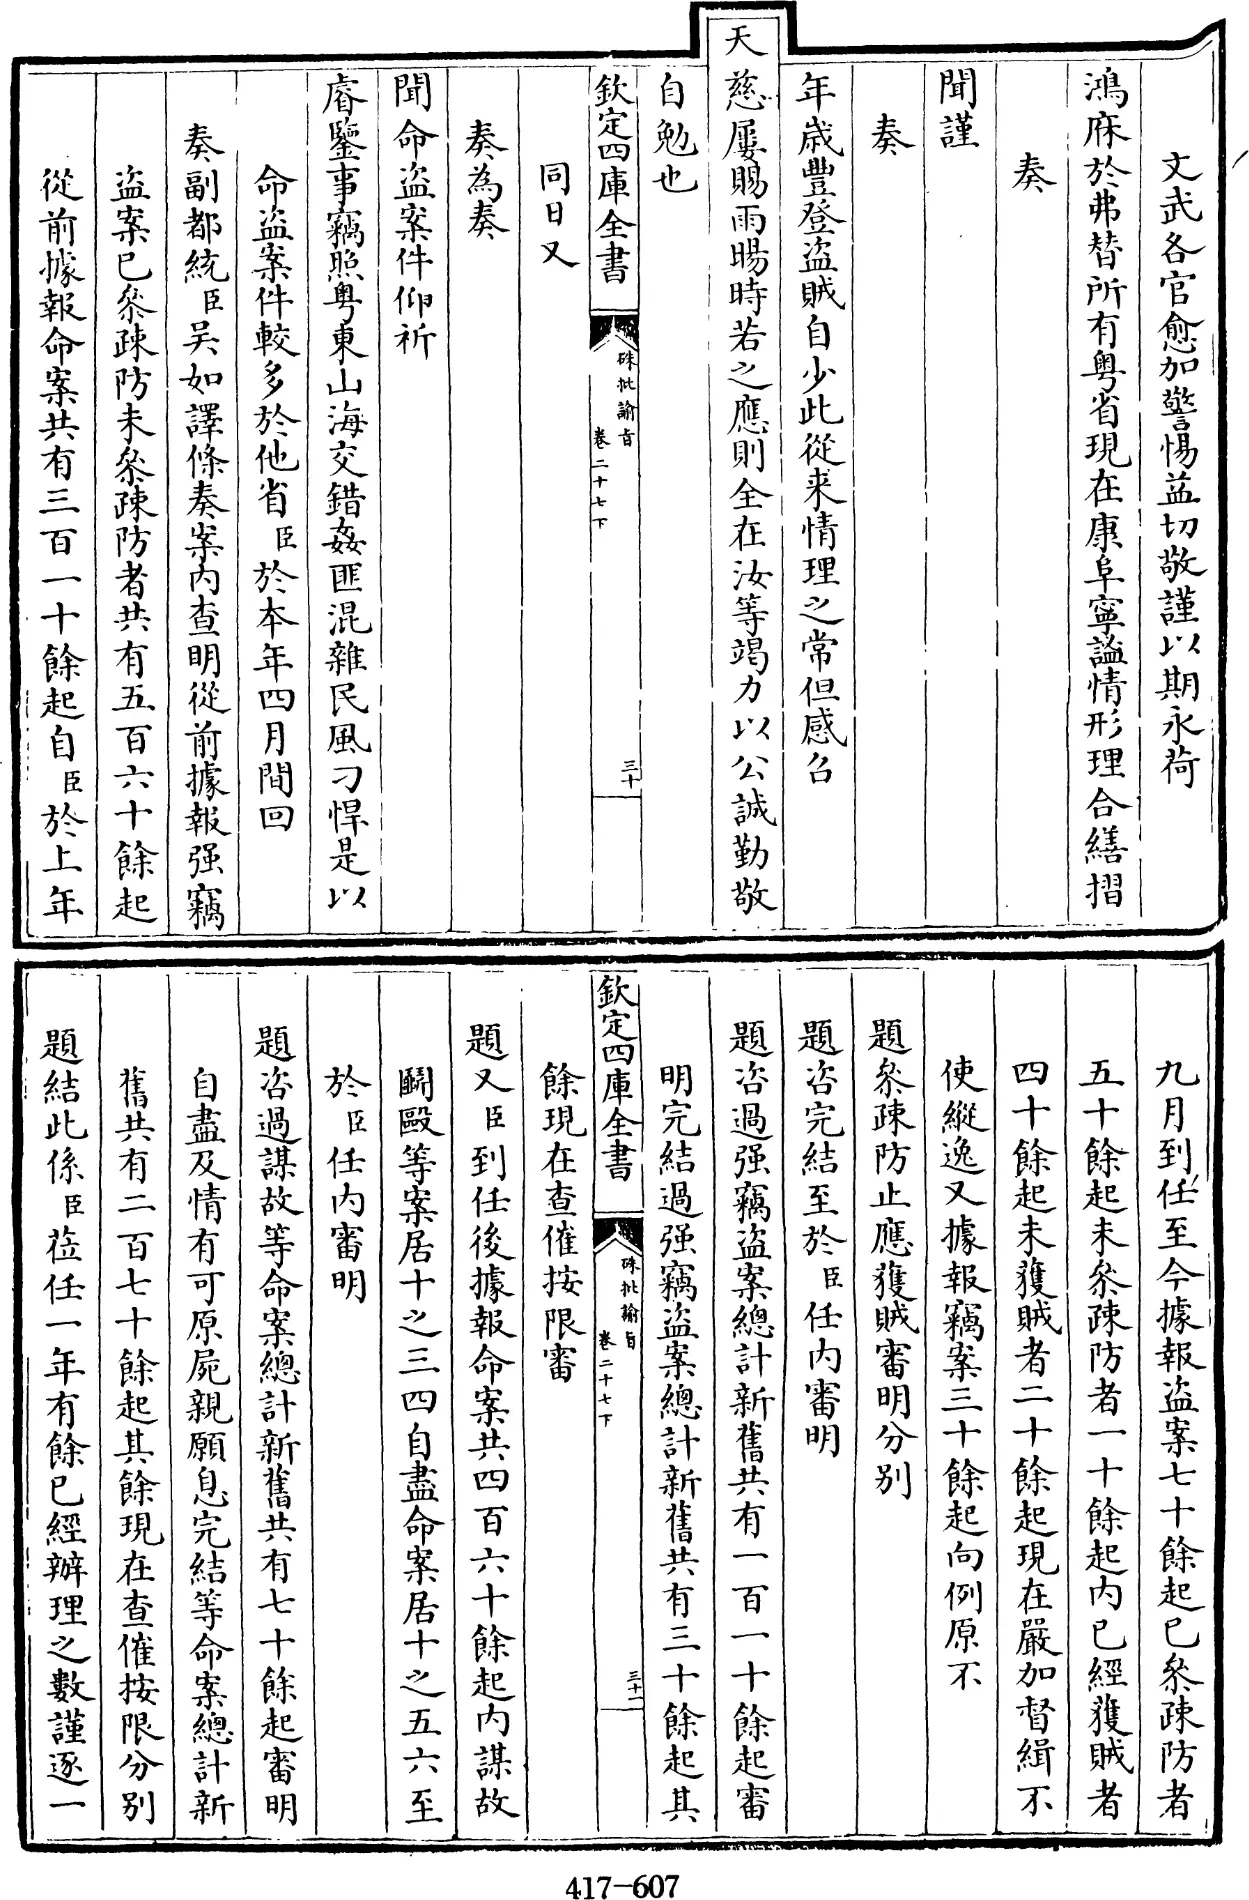 文武各官愈加警惕益切敬謹以期永荷
鴻庥於弗替所有粤省現在康阜寧謐情形理合繕摺
奏
聞謹
奏
年歳豐登盗賊自少此從来情理之常但感召
天慈屢賜雨暘時若之應則全在汝等竭力以公誠勤敬
自勉也
欽定四庫全書
硃批諭旨
卷二十七下
三十
同日又
奏為奏
聞命盗案件仰祈
睿鑒事竊照粤東山海交錯姦匪混雜民風刁悍是以
命盗案件較多於他省臣於本年四月間回
奏副都統臣吴如譯條奏案内查明從前據報强竊
盗案已叅疎防未叅疎防者共有五百六十餘起
從前據報命案共有三百一十餘起自臣於上年
九月到任至今據報盗案七十餘起已叅疎防者
五十餘起未叅疎防者一十餘起内已經獲賊者
四十餘起未獲賊者二十餘起現在嚴加督緝不
使縱逸又據報竊案三十餘起向例原不
題叅疎防止應獲賊審明分别
題咨完結至於臣任内審明
題咨過强竊盗案總計新舊共有一百一十餘起審
明完結過强竊盗案總計新舊共有三十餘起其
欽定四庫全書
硃批諭旨
卷二十七下
三十一
餘現在查催按限審
題又臣到任後據報命案共四百六十餘起内謀故
鬭毆等案居十之三四自盡命案居十之五六至
於臣任内審明
題咨過謀故等命案總計新舊共有七十餘起審明
自盡及情有可原屍親願息完結等命案總計新
舊共有二百七十餘起其餘現在查催按限分别
題結此係臣蒞任一年有餘已經辦理之數謹逐一
417-607